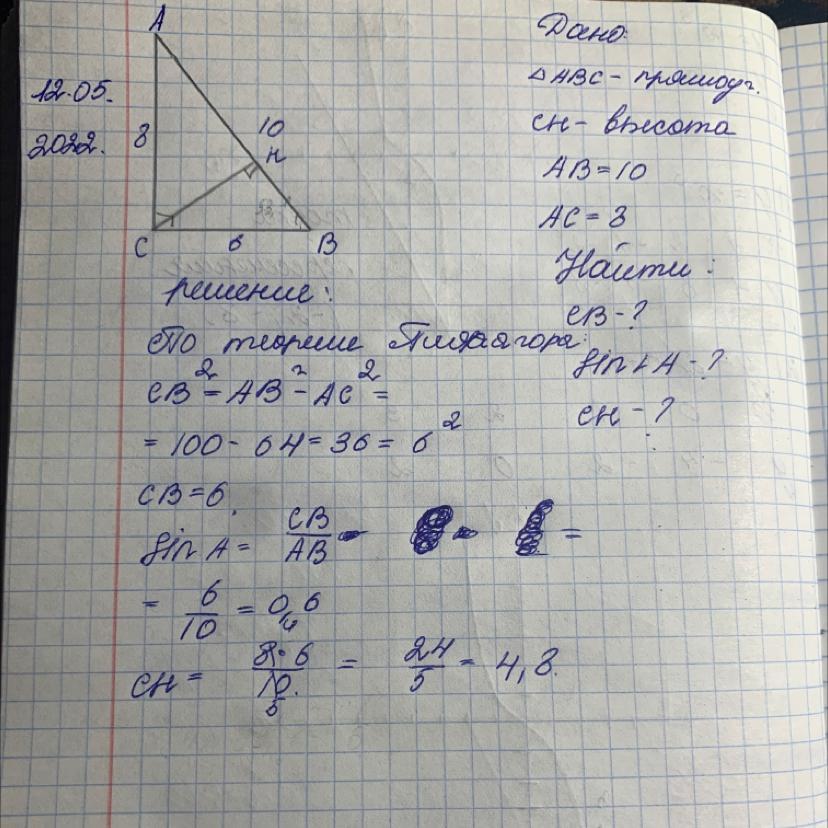 12.05.
2022.
A
8
10
H
C
6
B
Дано:
△ABC - прямоуг.
CH - высота
AB = 10
AC = 8
Найти:
CB - ?
sin∠A - ?
CH - ?
решение:
По теореме Пифагора:
CB² = AB² - AC² =
= 100 - 64 = 36 = 6²
CB = 6.
sin A = CB/AB =
= 6/10 = 0,6
CH = 8·6/10 5 = 24/5 = 4,8.